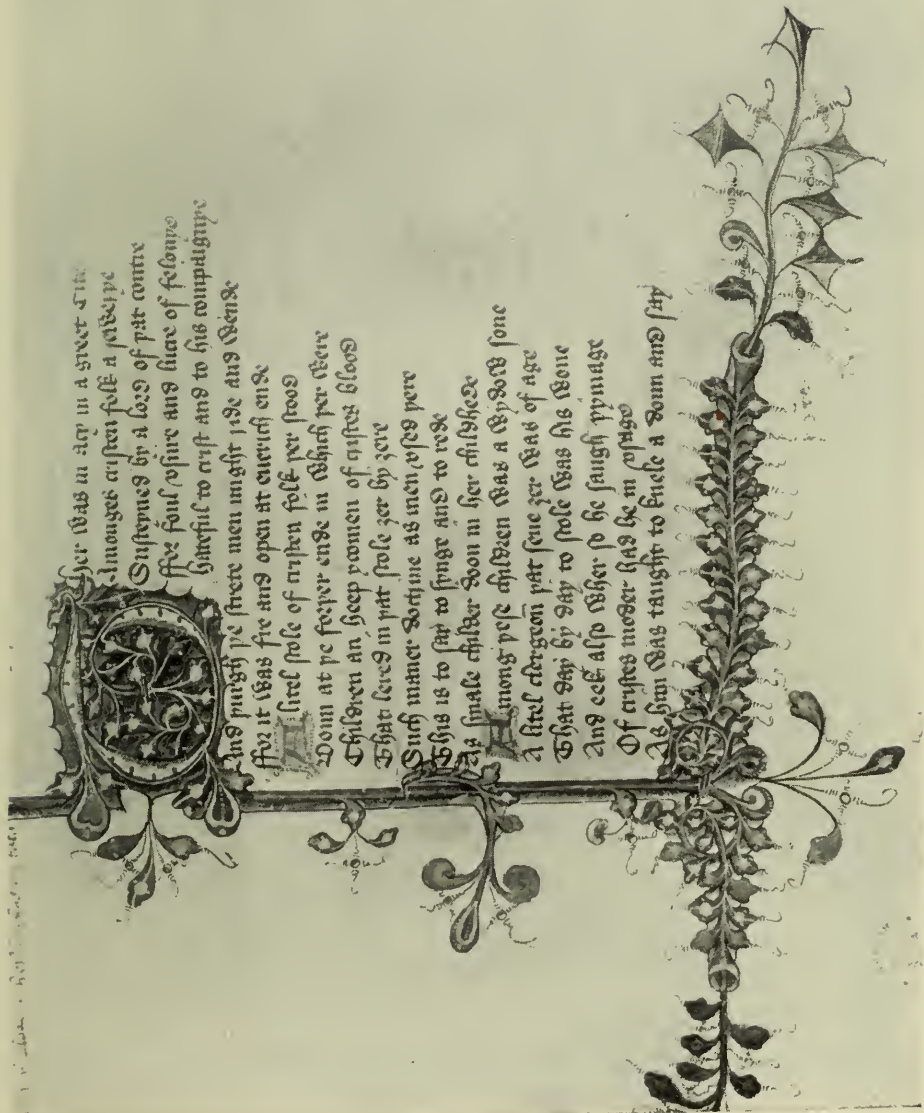 Ther was in asy in a greet Cite
Amonges cristen folk a Iewerye
Susteyned by a lord of þat contre
ffor foul vsure and lucre of felonye
hateful to crist and to his compaignye
And þurgh þe strete men might ride and wende
ffor it was fre and open at euerich ende
A litel scole of cristen folk þer stood
Doun at þe forþer ende in which þer were
Children an heep ycomen of cristes blood
That lered in þat scole ȝer by ȝere
Such maner doctrine as men vsed þere
This is to say to synge and to rede
As smale childer doon in her childhede
Among þese children was a wydow sone
A litel clergeon þat seue ȝer was of age
That day by day to scole was his wone
And eek also wher so he saugh þymage
Of cristes moder had he in vsage
As him was taught to knele a doun and say